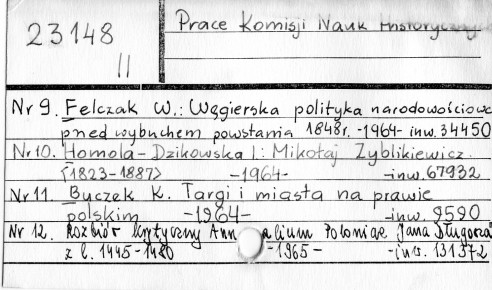 23148
II
Prace Komisji Nauk Historycznych
Nr 9. Felczak W.: Węgierska polityka narodowościowa
przed wybuchem powstania 1848r. -1964- inw. 34450
Nr 10. Homola-Dzikowska I.: Mikołaj Zyblikiewicz
(1823-1887) -1964- -inw. 67932
Nr 11. Buczek K. Targi i miasta na prawie
polskim -1964- -inw. 9590
Nr 12. Rozbiór krytyczny Annalium Poloniae Jana Długosza
z l. 1445-1480 -1965- -inw. 131372